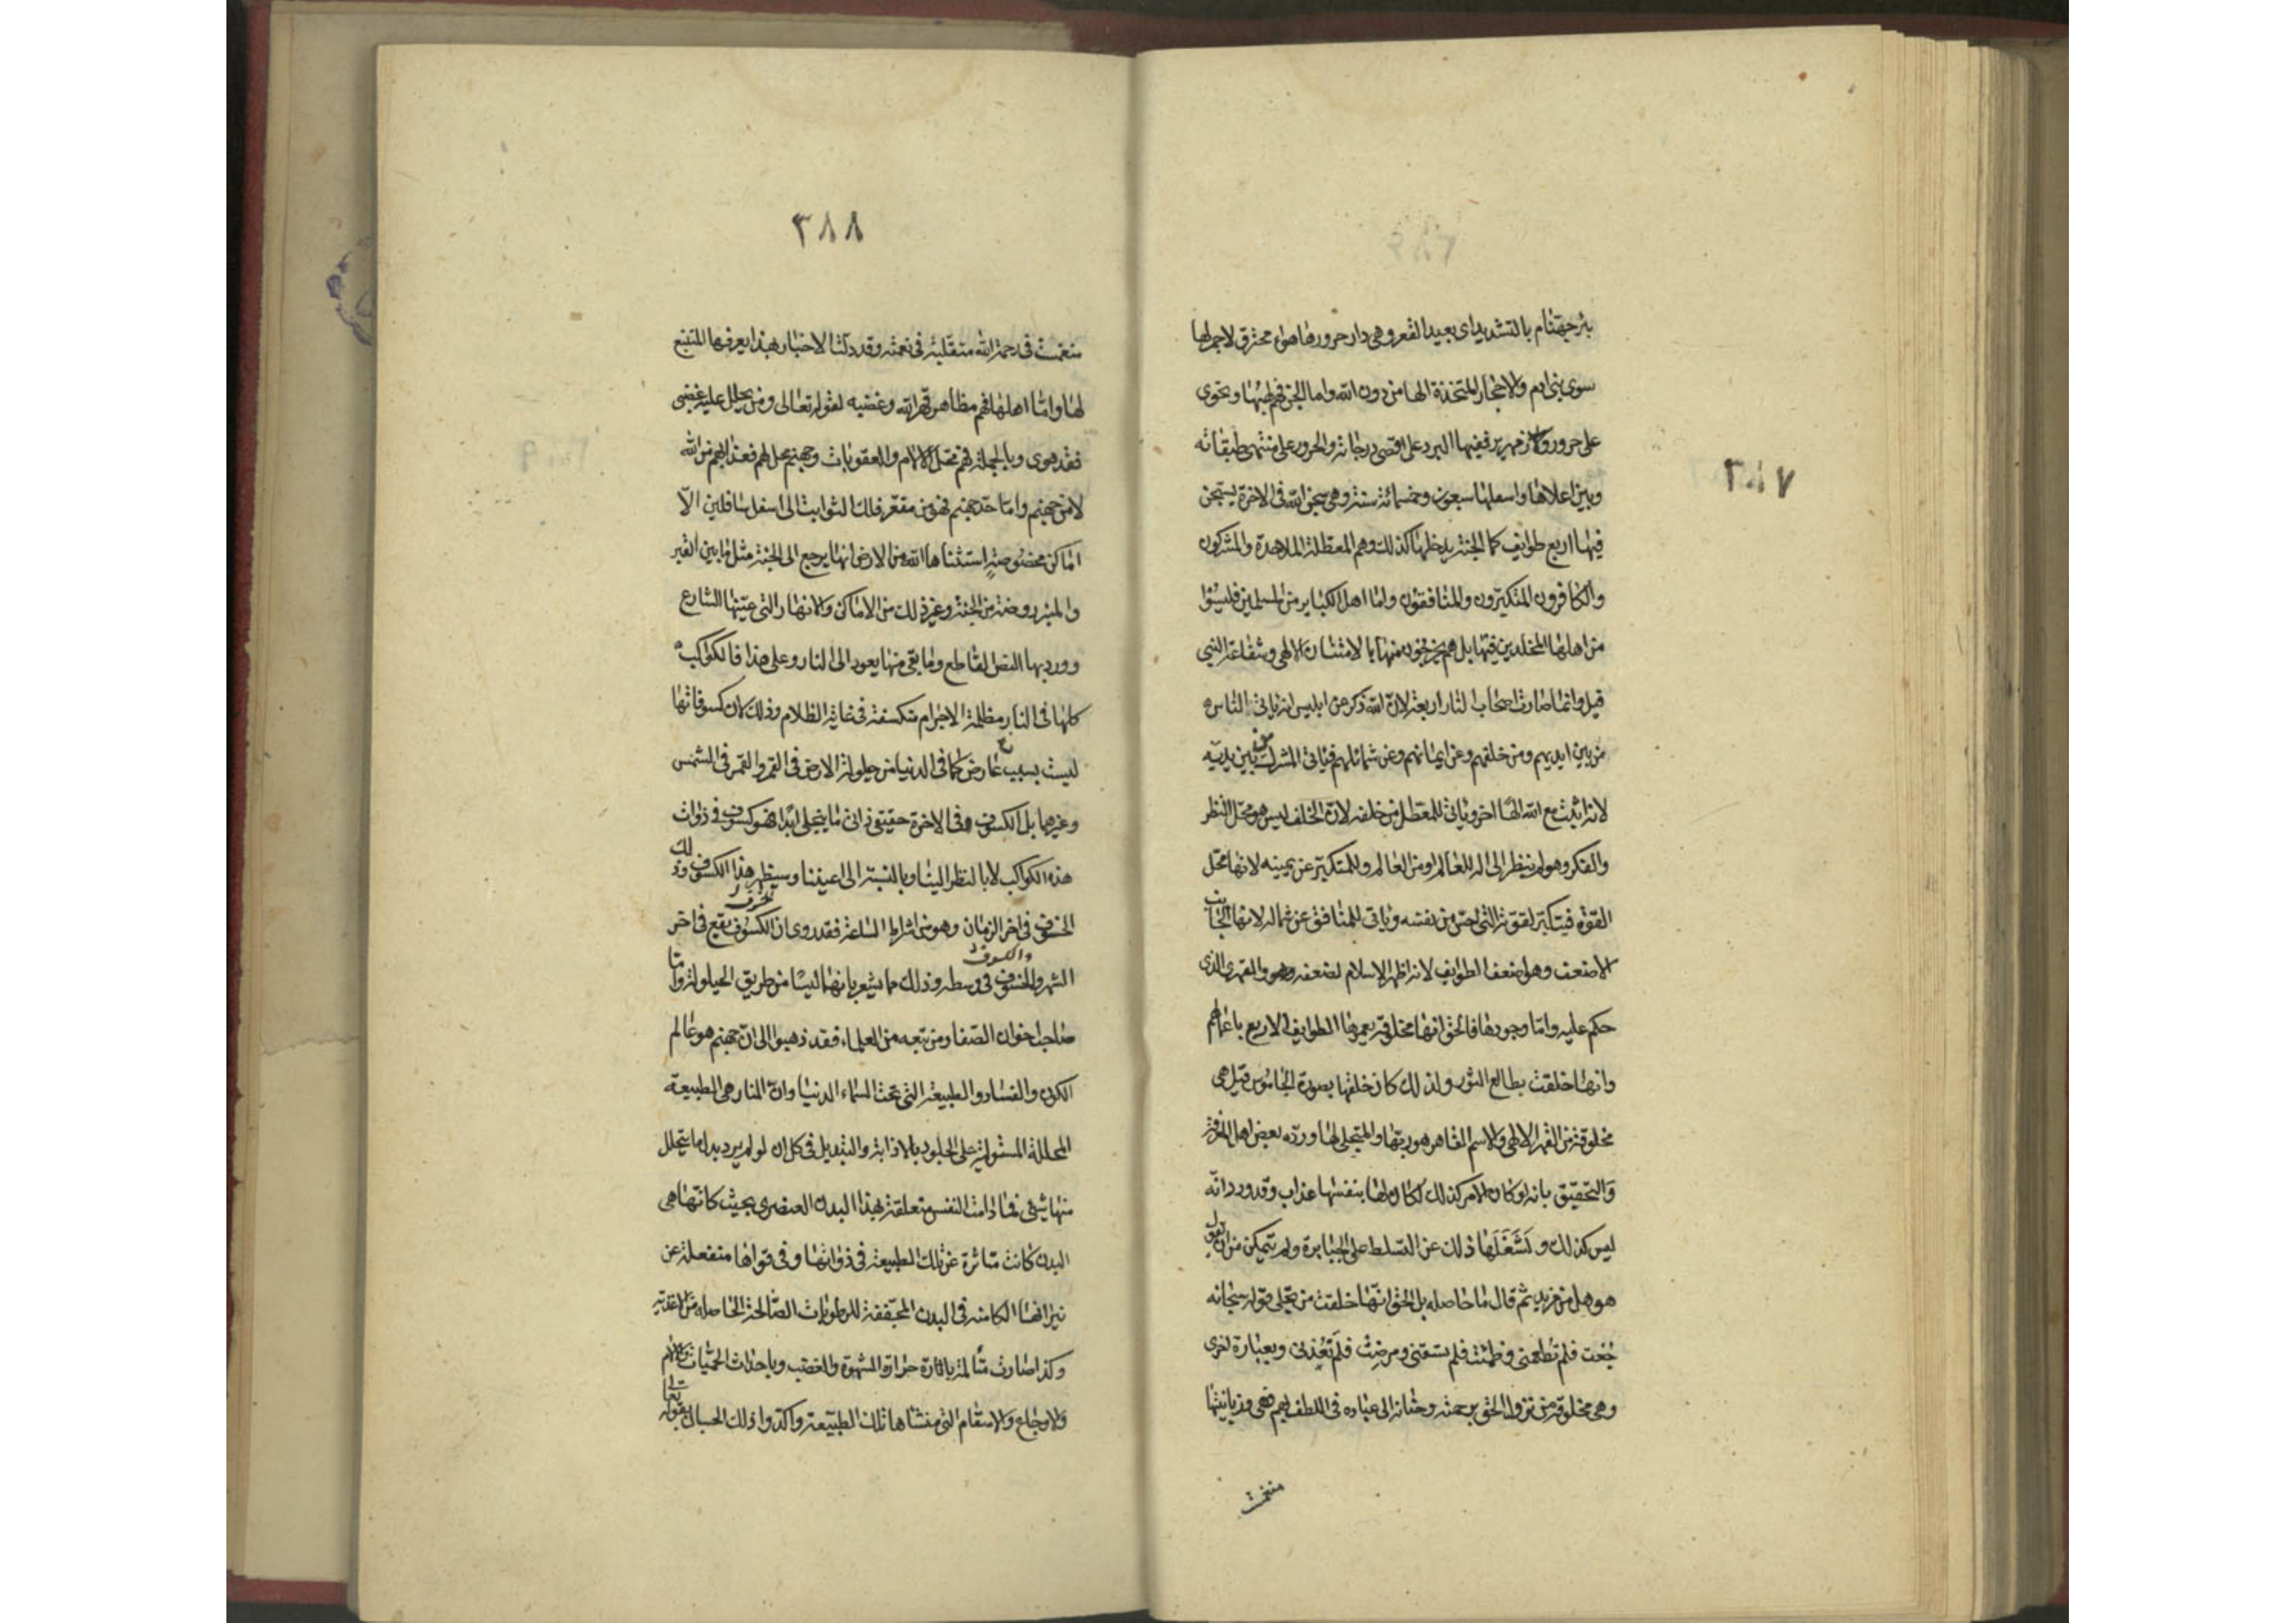 ٣٨٧
بئر جهنّام بالتشديد اى بعيد القعر وهى دار حرورها هواء محترق لا جمر لها
سوى بنى ادم والاحجار المتخذة الها من دون الله واما الجن فهم لهبها ويحوى
على حرور وزمهرير ففيها البرد على اقصى درجاته والحرور على منتهى طبقاته
وبين اعلاها واسفلها سبعون وخمسمائة سنة وهى سجن الله فى الاخرة يسجن
فيها اربع طوايف كما الجنة يدخلها كذلك وهم المعطلة الملاحدة والمشركون
والكافرون المتكبّرون والمنافقون واما اهل الكباير من المسلمين فليسوا
من اهلها المخلدين فيها بل هم يخرجون منها بالامتنان الالهى وشفاعة النبى
قيل وانما صارت اصحاب النار اربعة لان الله ذكر عن ابليس انه ياتى الناس
من بين ايديهم ومن خلفهم وعن ايمانهم وعن شمائلهم فياتى المشرك من بين يديه
لانه اثبت مع الله الها اخر وياتى للمعطل من خلفه لان الخلف ليس هو محل النظر
والفكر وهو لم ينظر الى اله للعالم او من العالم وللمتكبّر عن يمينه لانها محل
القوة فيتكبّر لقوته التى احسّ من نفسه وياتى للمنافق عن شماله لانها الجانب
الاضعف وهو اضعف الطوايف لانه اظهر الاسلام لضعفه وهو القهر الذى
حكم عليه وامّا وجودها فالحق انها مخلوقة يعمرها الطوايف الاربع باعمالهم
وانها خلقت بطالع الثور ولذلك كان خلقها بصورة الجاموس قيل هى
مخلوقة من القهر الالهى والاسم القاهر هو ربّها والمتجلى لها وردّه بعض اهل المعرفة
والتحقيق بانه لو كان الامر كذلك لكان لها بنفسها عذاب وقد ورد انه
ليس كذلك ولَشَغَلَها ذلك عن التسلط على الجبابرة ولم تتمكن من ان تقول
هو هل من مزيد ثم قال ما حاصله بل الحق انّها خلقت من تجلى قوله سبحانه
جُعت فلم تطعمنى وظمئت فلم تسقنى ومرضت فلم تَعُدنى وبعبارة اخرى
وهى مخلوقة من نزول الحق برحمته وحنانه الى عباده فى اللطف بهم فهى وزبانيتها
متنعمت
٣٨٨
متنعمت فى رحمة الله متقلبة فى نعمته وقد دلتنا الاخبار بهذا يعرفها المتتبع
لها وامّا اهلها فهم مظاهر قهر الله وغضبه لقوله تعالى ومن يحلل عليه غضبى
فقد هوى وبالجملة فهم محل الالام والعقوبات وجهنم محل لهم فعذابهم من الله
لا من جهنم وامّا حدّ جهنم فهو من مقعّر فلك الثوابت الى اسفل سافلين الّا
اماكن مخصوصةٍ استثناها الله من الارض انها يرجع الى الجنة مثل ما بين القبر
والمنبر روضة من الجنة وغير ذلك من الاماكن والانهار التى عيّنها الشارع
وورد بها النص القاطع وما بقى منها يعود الى النار وعلى هذا فالكواكب
كلها فى النار مظلمة الاجرام منكسفة فى غاية الظلام وذلك لان كسوفاتها
ليست بسبب عارض كما فى الدنيا من حيلولة الارض فى القمر والقمر فى الشمس
وغيرهما بل الكسوف فى الاخرة حقيقى ذاتى ما ينجلى ابدًا فهو كسوف فى ذوات
هذه الكواكب لا بالنظر الينا وبالنسبة الى اعيننا وسيظهر هذا الكسوف وذلك
الخسوف فى اخر الزمان وهو من اشراط الساعة فقد روى ان الكسوف يقع فى اخر
الشهر والخسوف فى وسطه وذلك مما يشعر بانهما ليسا من طريق الحيلولة وامّا
صاحب اخوان الصفا ومن تبعه من العلماء فقد ذهبوا الى ان جهنم هو عالم
الكون والفساد والطبيعة التى تحت السماء الدنيا وان النار هى الطبيعة
المحللة المستولية على الجلود بالاذابة والتبديل فى كل ان لو لم يرد بدل ما يتحلل
منها شىء فما دامت النفس متعلقة بهذا البدن العنصرى بحيث كانّها هى
البدن كانت متاثرة عن تلك الطبيعة فى ذواتها وفى قواها منفعلة عن
نيرانها الكامنة فى البدن المجفّفة للرطوبات الصّالحة الحاصله من الاغذية
وكذا صارت متالمة باثارة حرارة الشهوة والغضب وباحداث الحميات والالام
والاوجاع والاسقام التى منشاها تلك الطبيعة واكدوا ذلك الحسبان بقوله تعالى